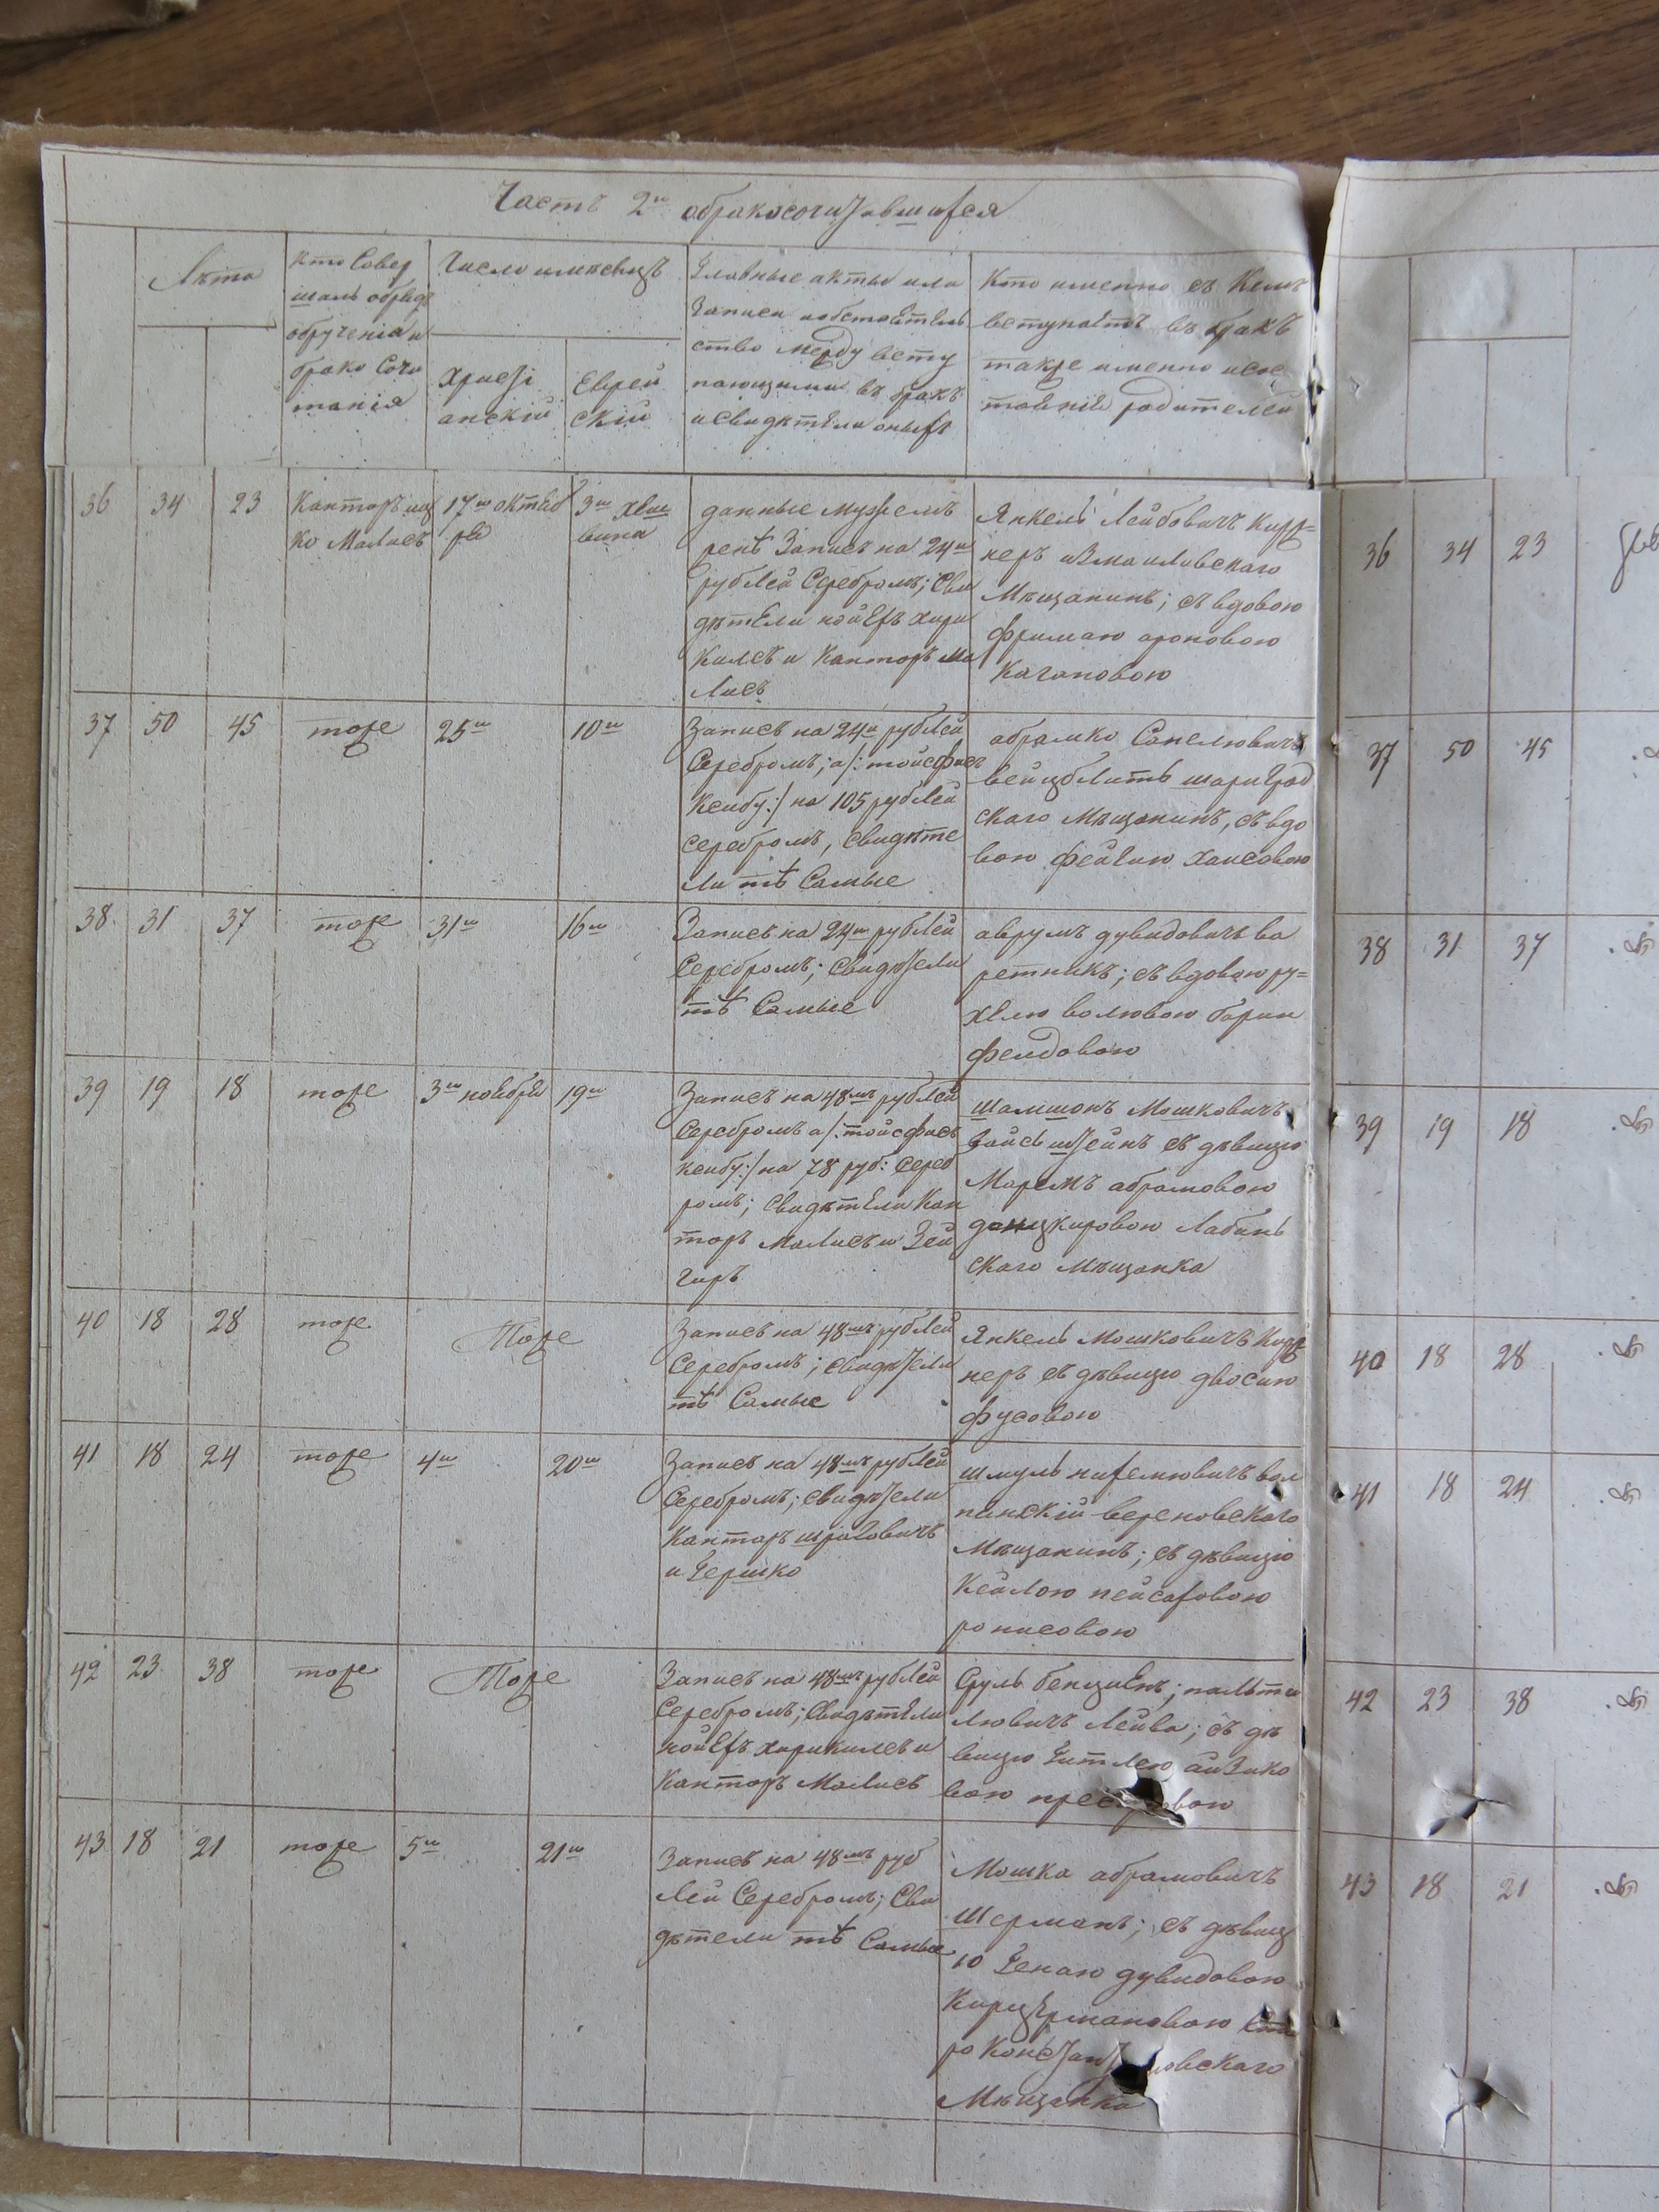 Часть 2я обракосочитавшихся
Лѣта
Кто Совер
шалъ обрядъ
обрученія и
брако Сочи
танія
Число имѣсецъ
Христі
анскій
Еврей
скій
Главные акты или
Записи иобстоятель
ство между всту
пающими въ бракъ
исвидѣтели оныхъ
Кто именно съ Кемъ
вступаетъ въ бракъ
также именно исос
товніе родителей
36 34 23
Канторъ иц
ко Малисъ
17го октяб
ря
3го хеш
вина
данные мужемъ
Записъ на 24и
рублей Серебромъ; Сви
дѣтели нойехъ хари
килсъ и Канторъ Ма
лисъ
Янкель Лейбовичъ Кирж=
неръ измаиловскаго
Мѣщанинъ; съ вдовою
фримаю ароновою
Кагановою
37 50 45
тоже
25го
10го
Записъ на 24и рублей
Серебромъ; а/: тойсфисъ
Ксибу:/ на 105 рублей
серебромъ, Свидѣте
ли тѣ Самые
абрамко Санелювичъ
вейцблитъ шаригрод
скаго Мѣщанинъ, съ вдо
вою фейгию Хаисовою
38 31 37
тоже
31го
16го
Записъ на 24и рублей
Серебромъ; Свидѣтели
тѣ Самые
аврумъ дувидовичъ ва
ретникъ; съ вдовою ру=
хлею волювою барин
фелдовою
39 19 18
тоже
3го ноября
19го
Записъ на 48мъ рублей
Серебромъ а/: тойсфисъ
ксибу:/ на 78 руб: Сереб
ромъ; Свидѣтели Кан
торъ Малисъ и Зей
геръ
Шамшонъ Мошковичъ
Вайсъ штейнъ съ дѣвицю
Маремъ абрамовою
донцкировою Лабинь
скаго Мѣщанка
40 18 28
тоже
Тоже
Записъ на 48мъ рублей
Серебромъ; свидѣтели
тѣ Самые
Янкель Мошковичъ Кирж
неръ съ дѣвицю двосию
фусовою
41 18 24
тоже
4го
20го
Записъ на 48мъ рублей
Серебромъ; свидѣтели
Канторъ шраговичъ
и Гершко
Шмуль нихемювичъ вол
пинскій вереновскаго
Мѣщанинъ; съ дѣвицю
Кейлою пейсаховою
ронисовою
42 23 38
тоже
Тоже
Записъ на 48мъ рублей
Серебромъ; Свидѣтели
нойехъ харикилсъ и
Канторъ Малисъ
Сруль бенциенъ; палти
лювичъ Лейва; съ дѣ
вицю Гитлею айзико
вою
43 18 21
тоже
5го
21го
Записъ на 48мъ руб
лей Серебромъ; Сви
дѣтели тѣ Самые
Мошка абрамовичъ
Шерманъ; съ дѣвиц
ю Генаю дувидовою
Кирцермановою Ста
ро Констант новскаго
Мѣщанка
36 34 23
37 50 45
38 31 37
39 19 18
40 18 28
41 18 24
42 23 38
43 18 21